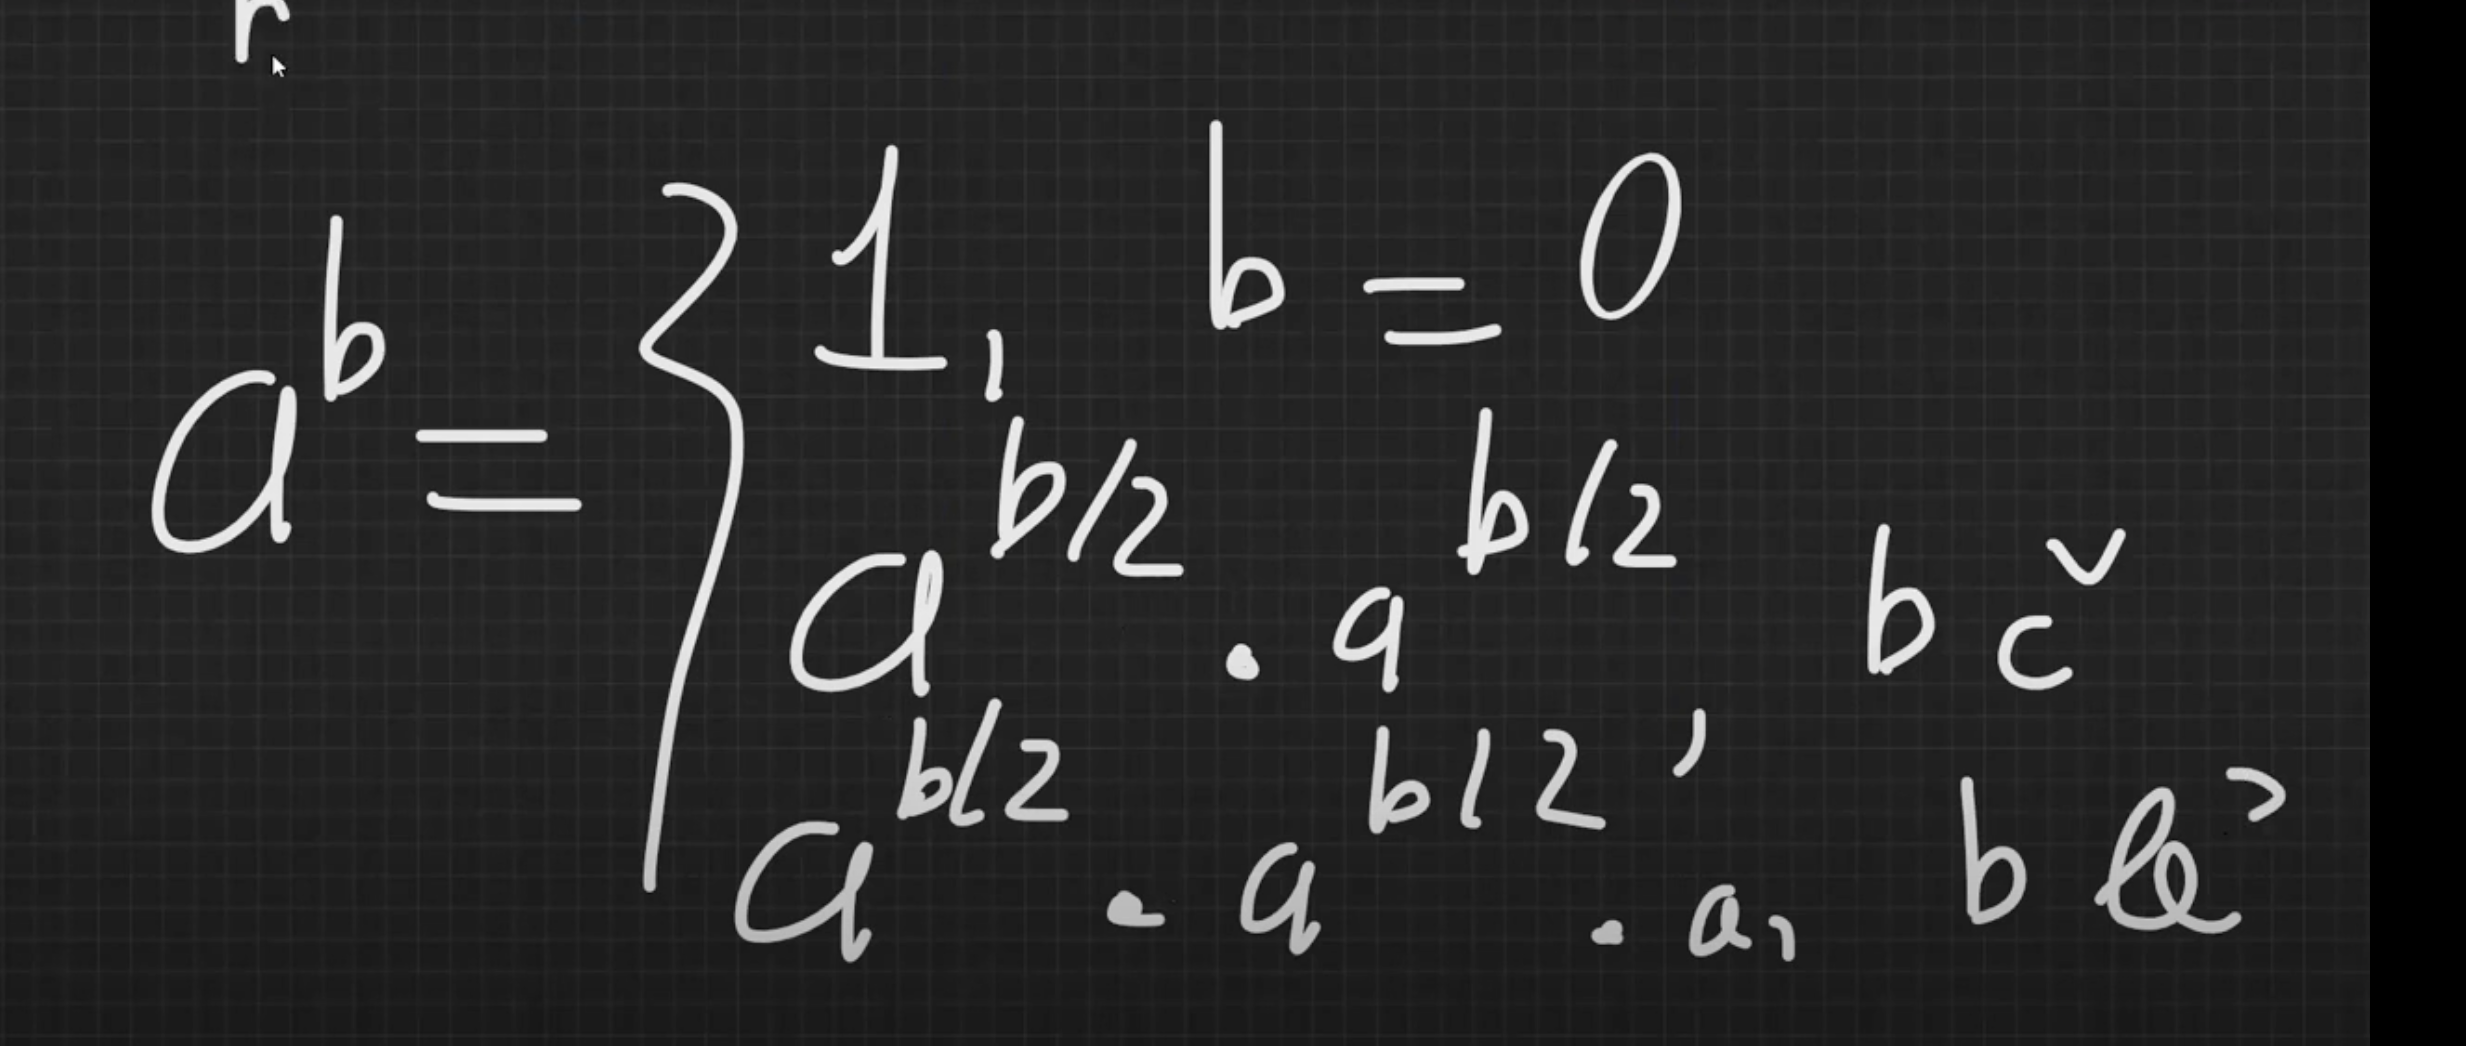 a^b = { 1, b = 0
a^{b/2} · a^{b/2}, b c
a^{b/2} · a^{b/2} · a, b lẻ